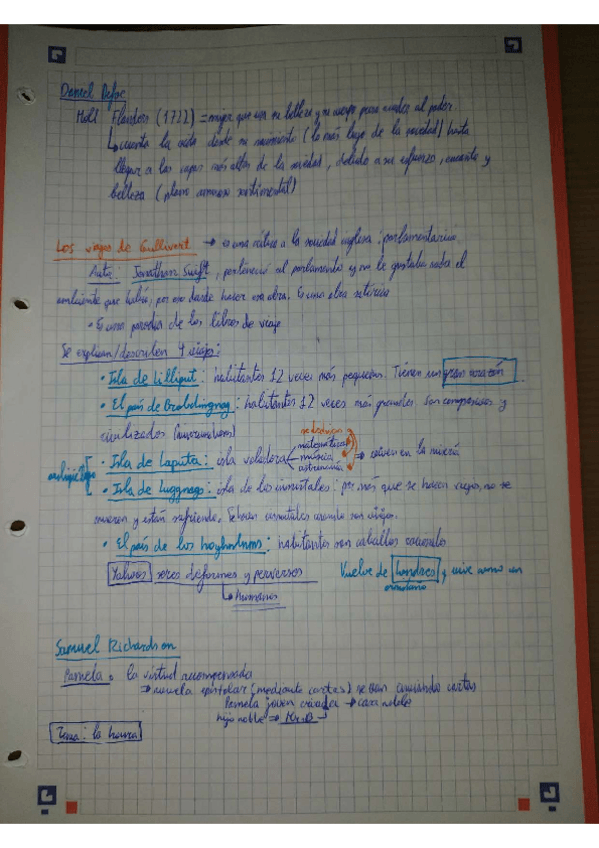 Daniel Defoe
Moll Flanders (1722) = mujer que usa su belleza y su cuerpo para acceder al poder
↳ cuenta la vida desde su nacimiento (lo más bajo de la sociedad) hasta
llegar a las capas más altas de la sociedad, debido a su esfuerzo, encanto y
belleza (plano amoroso sentimental)
Los viajes de Gullivert → es una crítica a la sociedad inglesa, parlamentarismo.
Autor: Jonathan Swift, perteneció al parlamento y no le gustaba nada el
ambiente que había, por eso decide hacer esa obra. Es una obra satírica
• Es una parodia de los libros de viaje
Se explican/describen 4 viajes:
• Isla de Lilliput: habitantes 12 veces más pequeños. Tienen un gran corazón
• El país de Brobdingnag: habitantes 12 veces más grandes. Son compasivos y
civilizados
archipiélago
• Isla de Laputa: isla voladora
se dedican
matemáticas
música
astronomía
→ viven en la miseria
• Isla de Luggnagg: isla de los inmortales: por más que se hacen viejos, no se
mueren y están sufriendo. Se hacen inmortales cuando son viejos.
• El país de los hoyhnhnms: habitantes son caballos razonales
Yahoos seres deformes y perversos
↳ Humanos
Vuelve de Londres y vive como un
ermitaño
Samuel Richardson
Pamela o la virtud recompensada
⇒ novela epistolar (mediante cartas) se van enviando cartas
Pamela joven criada → casa noble
hijo noble ⇒ Mr. B
Tema: la honra